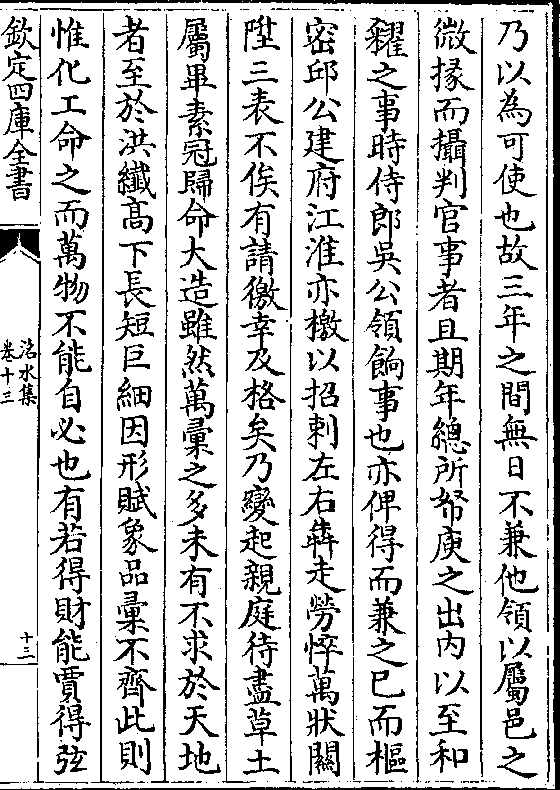 乃以為可使也故三年之間無日不兼他領以屬邑之
微掾而攝判官事者且期年總所帑庾之出内以至和
糴之事時侍郎吳公領餉事也亦俾得而兼之已而樞
密邱公建府江淮亦檄以招刺左右犇走勞悴萬狀闗
陞三表不俟有請徼幸及格矣乃變起親庭待盡草土
屬畢素冠歸命大造雖然萬彚之多未有不求於天地
者至於洪纎髙下長短巨細因形賦象品彚不齊此則
惟化工命之而萬物不能自必也有若得財能賈得弦
欽定四庫全書
洺水集
卷十三
十三